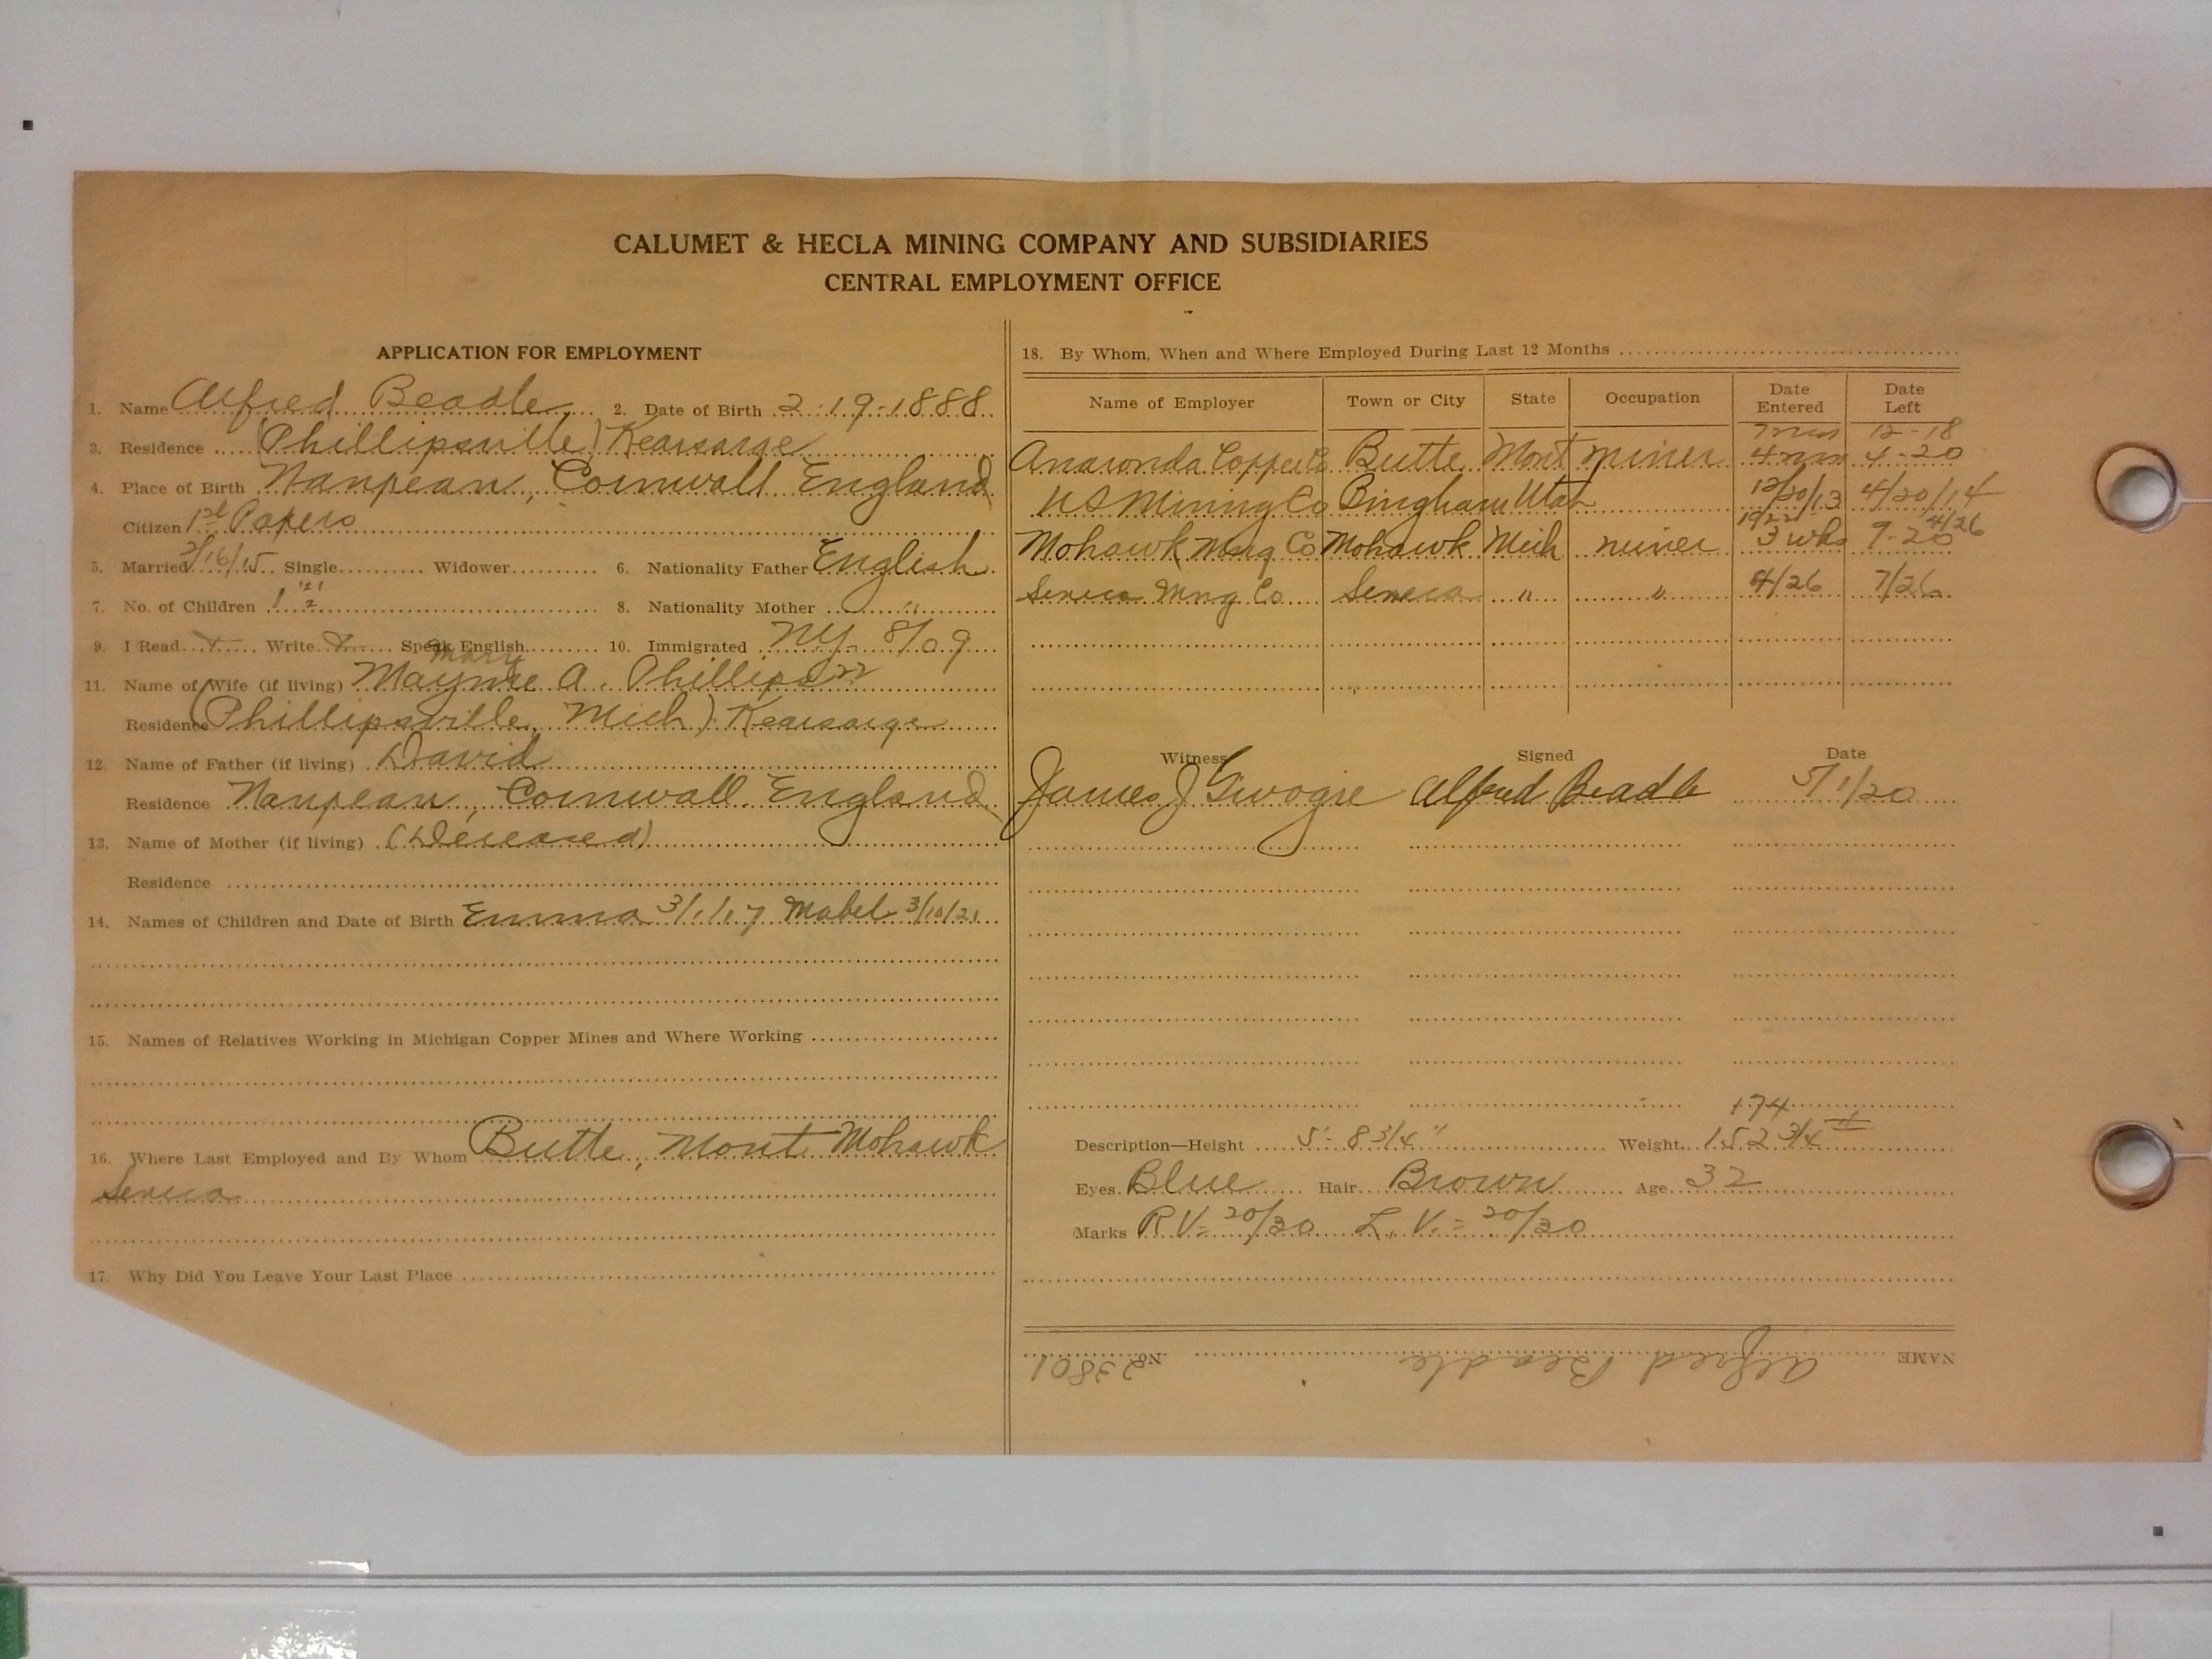 CALUMET & HECLA MINING COMPANY AND SUBSIDIARIES
CENTRAL EMPLOYMENT OFFICE
APPLICATION FOR EMPLOYMENT
1. Name Alfred Beadle 2. Date of Birth 2-19-1888
3. Residence (Phillipsville) Kearsarge
4. Place of Birth Nanpean, Cornwall England
Citizen 1st Papers
5. Married 2/16/15 Single Widower 6. Nationality Father English
7. No. of Children 1 2 '21 8. Nationality Mother "
9. I Read x Write x Speak English 10. Immigrated NY 8/09
Mary
11. Name of Wife (if living) Mayme A. Phillips
Residence (Phillipsville, Mich) Kearsarge
12. Name of Father (if living) David
Residence Nanpean, Cornwall England
13. Name of Mother (if living) (Deseased)
Residence
14. Names of Children and Date of Birth Emma 3/1/17 Mabel 3/10/21
15. Names of Relatives Working in Michigan Copper Mines and Where Working
16. Where Last Employed and By Whom Butte, Mont Mohawk
Seneca
17. Why Did You Leave Your Last Place
18. By Whom, When and Where Employed During Last 12 Months
Name of Employer Town or City State Occupation Date Entered Date Left
12-18
Anaconda Copper Co Butte Mont miner 4 4-20
US Mining Co Bingham Utah 12/20/13 4/20/14
Mohawk Mng Co Mohawk Mich miner 3 wks 9-20 4/26
Seneca Mng Co Seneca " " 4/26 7/26
Witness Signed Date
James J Alfred Beadle 5/1/20
174
Description—Height 5'- 8 3/4" Weight 152 3/4 #
Eyes Blue Hair Brown Age 32
Marks R V= 20/30 L. V. = 20/30
NAME Alfred Beadle No. 23801